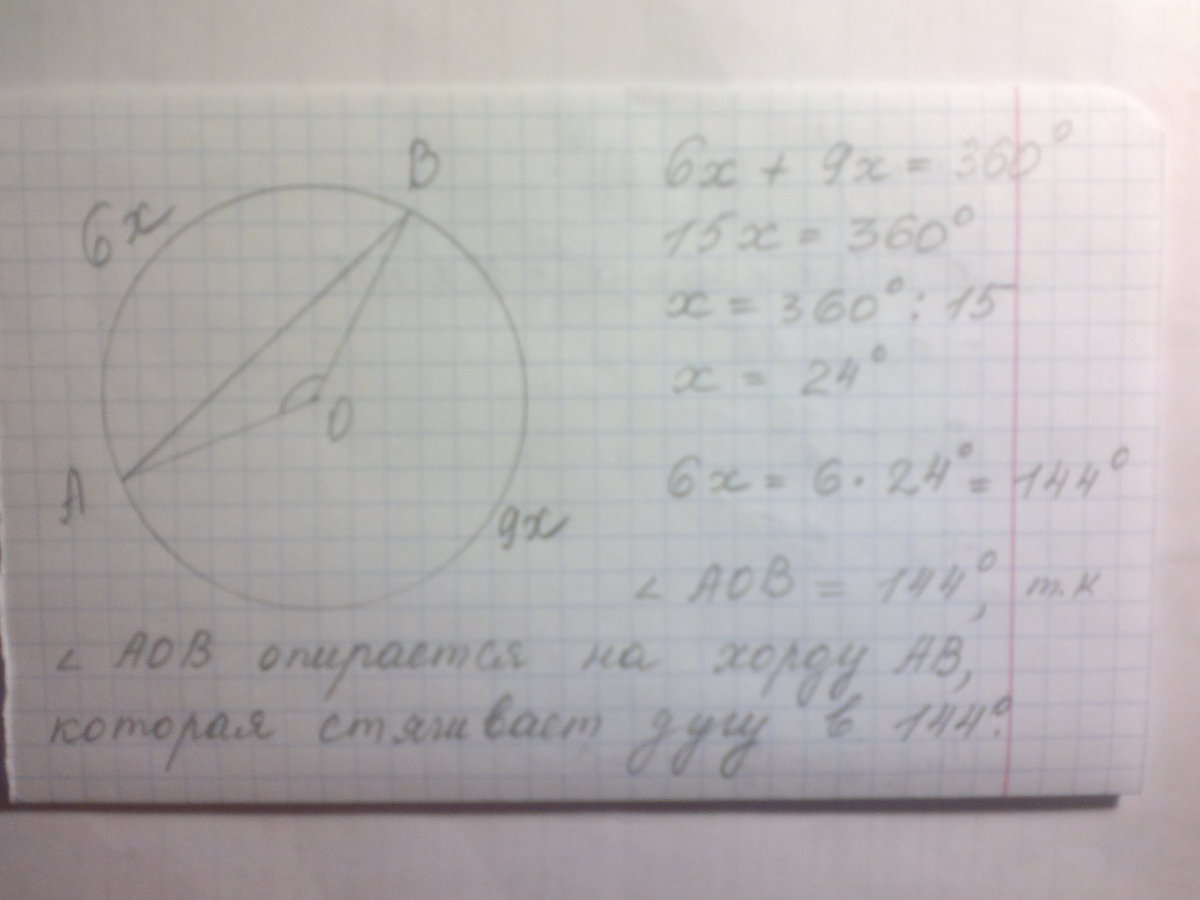 B
6x
O
A
9x
6x + 9x = 360°
15x = 360°
x = 360° : 15
x = 24°
6x = 6 · 24° = 144°
∠ AOB = 144°, т.к
∠ AOB опирается на хорду AB,
которая стягивает дугу в 144°.